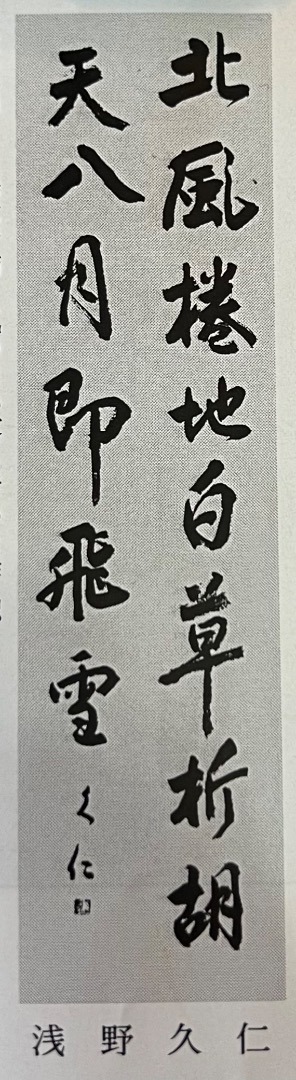 北風捲地白草折胡
天八月即飛雪
久仁
浅野久仁